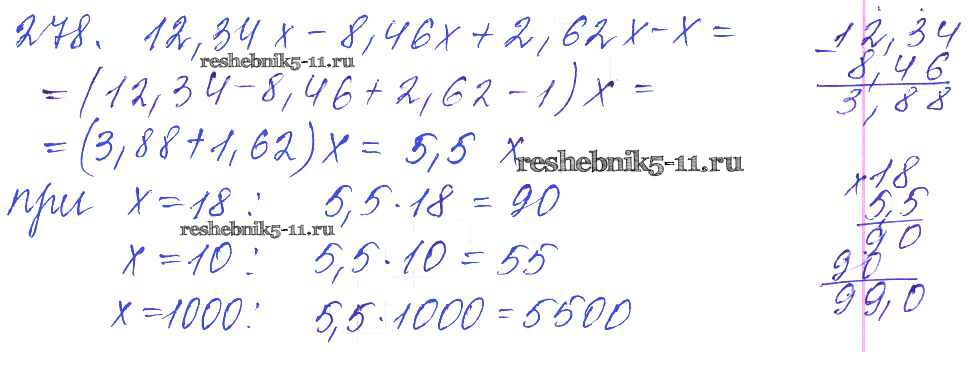 278. 12,34x - 8,46x + 2,62x - x =
reshebnik5-11.ru
= (12,34 - 8,46 + 2,62 - 1) x =
= (3,88 + 1,62) x = 5,5 x
reshebnik5-11.ru
при x = 18 : 5,5 · 18 = 90
reshebnik5-11.ru
x = 10 : 5,5 · 10 = 55
x = 1000 : 5,5 · 1000 = 5500
- 12,34
8,46
3,88
x 18
5,5
90
90
99,0